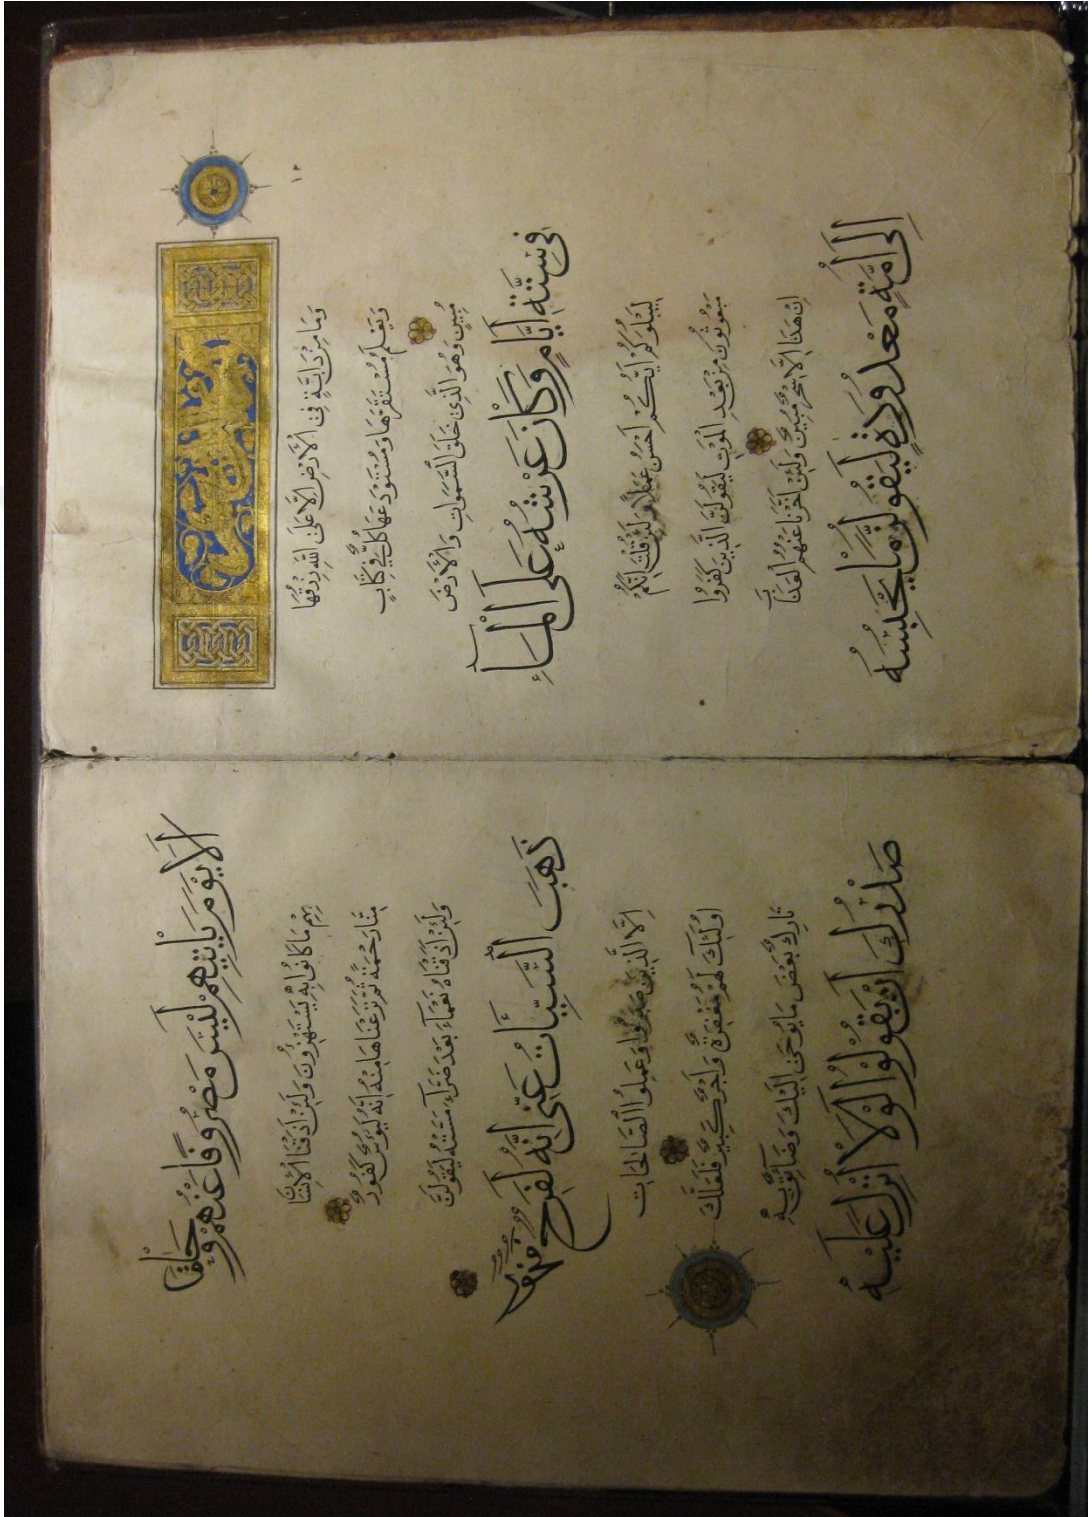 ١٢
وَمَا مِنْ دَابَّةٍ فِي الْأَرْضِ اِلَّا عَلَى اللهِ رِزْقُهَا
وَيَعْلَمُ مُسْتَقَرَّهَا وَمُسْتَوْدَعَهَا كُلٌّ فِي كِتَابٍ
مُبِينٍ وَهُوَ الَّذِي خَلَقَ السَّمَوَاتِ وَالْأَرْضَ
فِي سِتَّةِ أَيَّامٍ وَكَانَ عَرْشُهُ عَلَى الْمَاءِ
لِيَبْلُوَكُمْ اَيُّكُمْ اَحْسَنُ عَمَلًا وَلَئِنْ قُلْتَ اِنَّكُمْ
مَبْعُوثُونَ مِنْ بَعْدِ الْمَوْتِ لَيَقُولَنَّ الَّذِينَ كَفَرُوا
اِنْ هَذَا اِلَّا سِحْرٌ مُبِينٌ وَلَئِنْ اَخَّرْنَا عَنْهُمُ الْعَذَابَ
اِلَى أُمَّةٍ مَعْدُودَةٍ لَيَقُولُنَّ مَا يَحْبِسُهُ
اَلَا يَوْمَ يَأْتِيهِمْ لَيْسَ مَصْرُوفًا عَنْهُمْ وَحَاقَ
بِهِمْ مَا كَانُوا بِهِ يَسْتَهْزِؤُنَ وَلَئِنْ اَذَقْنَا الْاِنْسَانَ
مِنَّا رَحْمَةً ثُمَّ نَزَعْنَاهَا مِنْهُ اِنَّهُ لَيَؤُسٌ كَفُورٌ
وَلَئِنْ اَذَقْنَاهُ نَعْمَاءَ بَعْدَ ضَرَّاءَ مَسَّتْهُ لَيَقُولَنَّ
ذَهَبَ السَّيِّئَاتُ عَنِّي اِنَّهُ لَفَرِحٌ فَخُورٌ
اِلَّا الَّذِينَ صَبَرُوا وَعَمِلُوا الصَّالِحَاتِ
اُولَئِكَ لَهُمْ مَغْفِرَةٌ وَاَجْرٌ كَبِيرٌ فَلَعَلَّكَ
تَارِكٌ بَعْضَ مَا يُوحَى اِلَيْكَ وَضَائِقٌ بِهِ
صَدْرُكَ اَنْ يَقُولُوا لَوْلَا أُنْزِلَ عَلَيْهِ